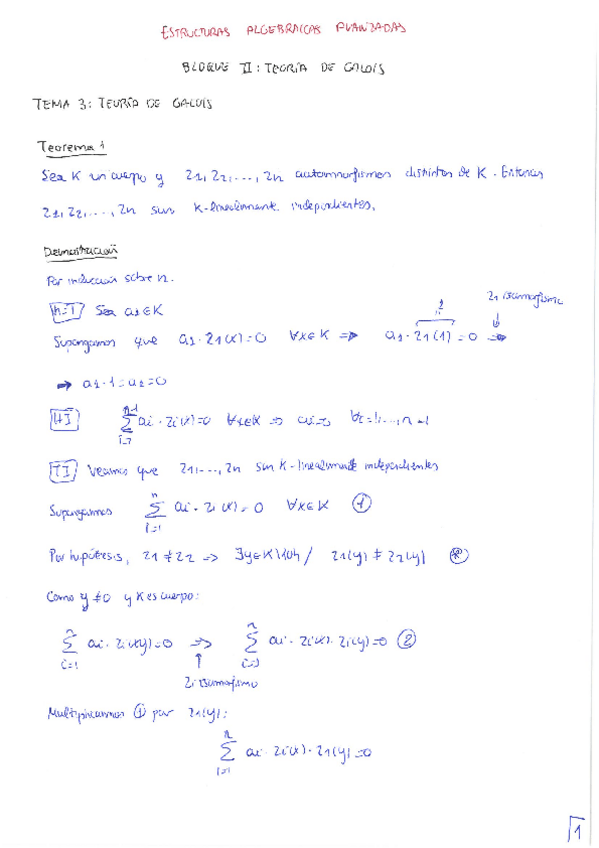 ESTRUCTURAS ALGEBRAICAS AVANZADAS
BLOQUE II: TEORÍA DE GALOIS
TEMA 3: TEORÍA DE GALOIS
Teorema 1
Sea K un cuerpo y z1, z2, ..., zn automorfismos distintos de K. Entonces
z1, z2, ..., zn son K-linealmente independientes.
Demostración
Por inducción sobre n.
n=1 Sea a1∈K
1
z1 isomorfismo
Supongamos que a1·z1(x)=0 ∀x∈K ⇒ a1·z1(1)=0 ⇒
⇒ a1·1=a1=0
HI ∑_{i=1}^{n-1} ai·zi(x)=0 ∀x∈K ⇒ ai=0 ∀i=1,...,n-1
TI Veamos que z1,...,zn son K-linealmente independientes
Supongamos ∑_{i=1}^{n} ai·zi(x)=0 ∀x∈K ①
Por hipótesis, z1≠z2 ⇒ ∃y∈K\{0} / z1(y)≠z2(y) (*)
Como y≠0 y K es cuerpo:
∑_{i=1}^{n} ai·zi(xy)=0 ⇒ ∑_{i=1}^{n} ai·zi(x)·zi(y)=0 ②
↑
zi isomorfismo
Multiplicamos ① por z1(y):
∑_{i=1}^{n} ai·zi(x)·z1(y)=0
1